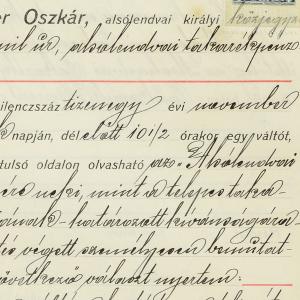 er Oszkár, alsólendvai királyi közjegyz
mil úr, alsólendvai takarékpénz
ilenczszáz tizenegy évi november
k napján, délelőtt 10 1/2 órakor egy váltót,
tulső oldalon olvasható azo "Alsólendvai
ére neki, mint a telepes taka
tárnak határozott kívánságára
és végett személyesen bemutat
övetkező választ nyertem: